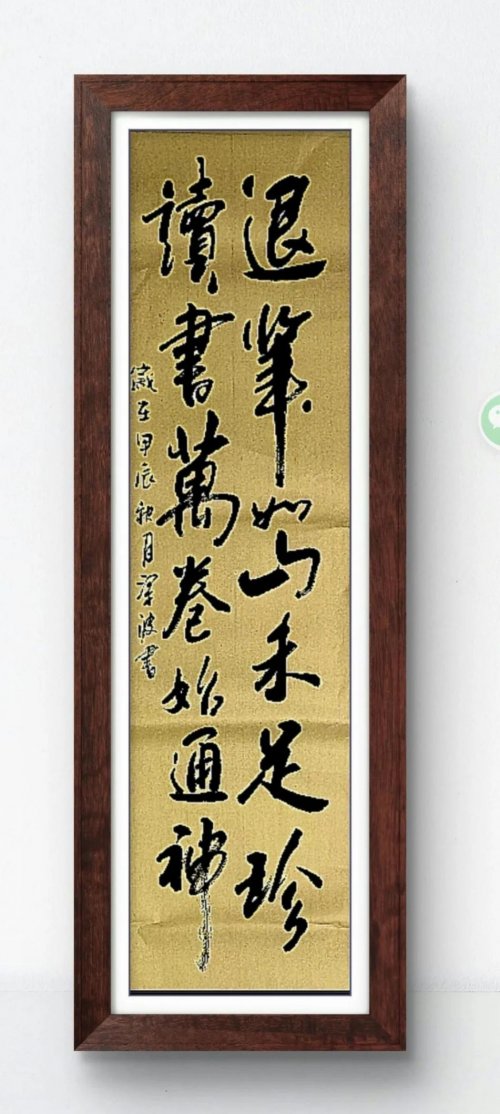 退筆如山未足珍
讀書萬卷始通神
歲在甲辰秋月深波書